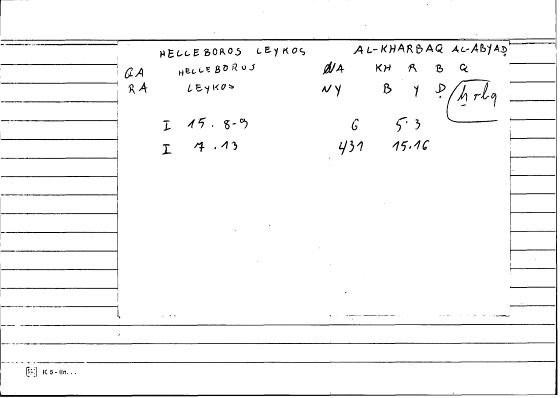 HELLEBOROS LEYKOS AL-KHARBAQ AL-ABYAḌ
QA HELLEBORUS NA KH R B Q
RA LEYKOS NY B Y Ḍ ḫrbq
I 15. 8-9 6 5.3
I 7.13 431 15.16